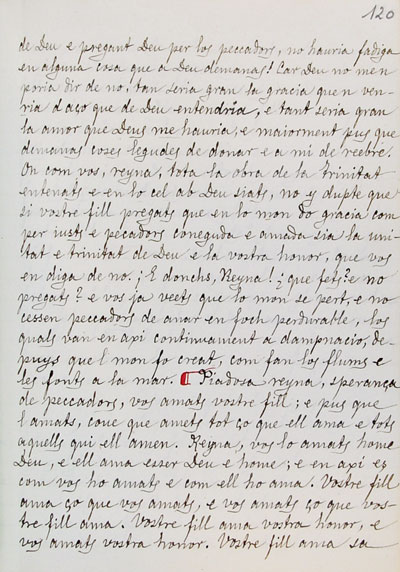 120
de Deu e pregant Deu per los peccadors, no hauria fadiga
en alguna cosa que a Deu demanas! Car Deu no men
poria dir de no, tan seria gran la gracia que n ven-
ria d aço que de Deu entendria, e tant seria gran
la amor que Deus me hauria, e maiorment pus que
demanas coses legudes de donar e a mi de reebre.
On com vos, reyna, tota la obra de la trinitat
entenats e en lo cel ab Deu siats, no y dupte que
si vostre fill pregats que en lo mon do gracia com
per iusts e pecadors coneguda e amada sia la uni-
tat e trinitat de Deu e la vostra honor, que vos
en diga de no. ¡E donchs, Reyna! ¿que fets? e no
pregats? e vos ja veets que lo mon se pert, e no
cessen peccadors de anar en foch perdurable, los
quals van en axi continuament a dampnacio, de-
puys que l mon fo creat, com fan los flums e
les fonts a la mar. ¶ Piadosa reyna, sperança
de peccadors, vos amats vostre fill; e pus que
l amats, cove que amets tot ço que ell ama e tots
aquells qui ell amen. Reyna, vos lo amats home
Deu, e ell ama esser Deu e home; e en axi es
com vos ho amats e com ell ho ama. Vostre fill
ama ço que vos amats, e vos amats ço que vos-
tre fill ama. Vostre fill ama vostra honor, e
vos amats vostra honor. Vostre fill ama sa